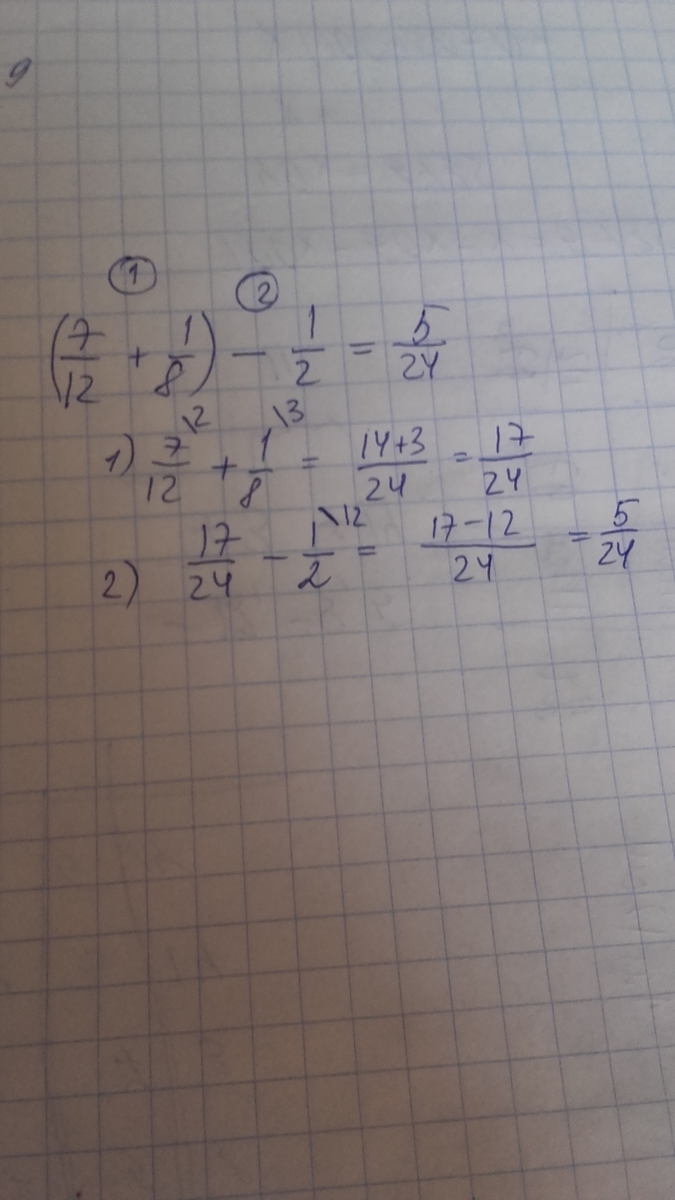 9
① ②
(7/12 + 1/8) − 1/2 = 5/24
1) 7/12 \2 + 1/8 \3 = 14+3/24 = 17/24
2) 17/24 − 1/2 \12 = 17−12/24 = 5/24